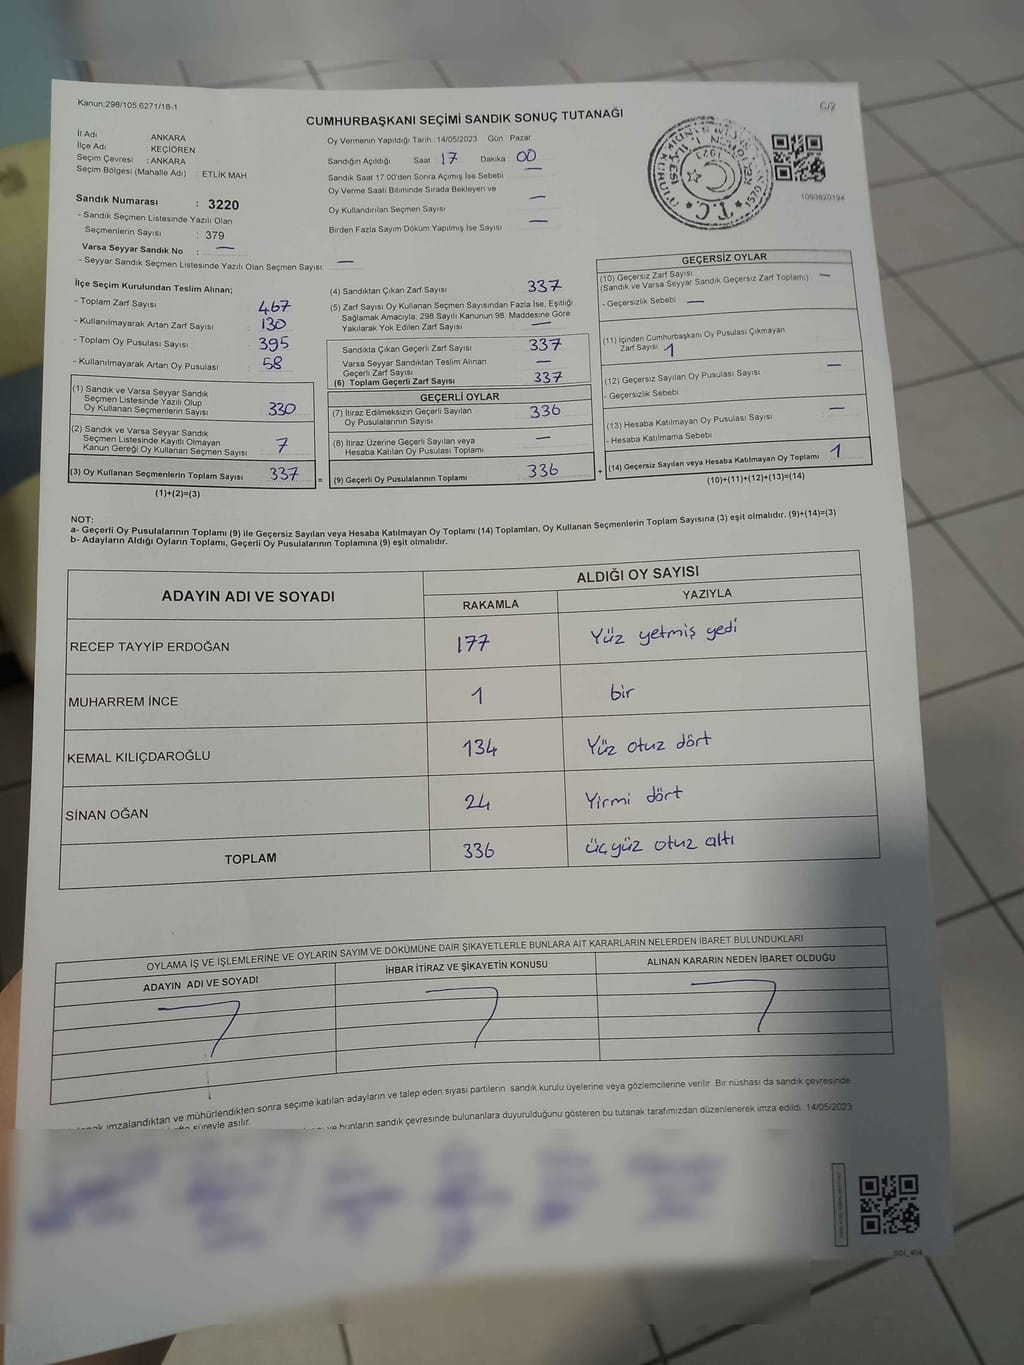 Kanun;298/105,6271/18-1
C/2
CUMHURBAŞKANI SEÇİMİ SANDIK SONUÇ TUTANAĞI
İl Adı : ANKARA
İlçe Adı : KEÇİÖREN
Seçim Çevresi : ANKARA
Seçim Bölgesi (Mahalle Adı) : ETLİK MAH
Sandık Numarası : 3220
- Sandık Seçmen Listesinde Yazılı Olan
Seçmenlerin Sayısı : 379
Varsa Seyyar Sandık No : —
- Seyyar Sandık Seçmen Listesinde Yazılı Olan Seçmen Sayısı: —
Oy Vermenin Yapıldığı Tarih :14/05/2023 Gün Pazar
Sandığın Açıldığı Saat 17 Dakika 00
Sandık Saat 17.00'den Sonra Açımış İse Sebebi —
Oy Verme Saati Bitiminde Sırada Bekleyen ve
Oy Kullandırılan Seçmen Sayısı —
Birden Fazla Sayım Döküm Yapılmış İse Sayısı —
T.C.
1923
1093620194
İlçe Seçim Kurulundan Teslim Alınan;
- Toplam Zarf Sayısı 467
- Kullanılmayarak Artan Zarf Sayısı 130
- Toplam Oy Pusulası Sayısı 395
- Kullanılmayarak Artan Oy Pusulası 58
(1) Sandık ve Varsa Seyyar Sandık
Seçmen Listesinde Yazılı Olup
Oy Kullanan Seçmenlerin Sayısı 330
(2) Sandık ve Varsa Seyyar Sandık
Seçmen Listesinde Kayıtlı Olmayan
Kanun Gereği Oy Kullanan Seçmen Sayısı 7
(3) Oy Kullanan Seçmenlerin Toplam Sayısı 337 =
(1)+(2)=(3)
(4) Sandıktan Çıkan Zarf Sayısı 337
(5) Zarf Sayısı Oy Kullanan Seçmen Sayısından Fazla İse, Eşitliği
Sağlamak Amacıyla; 298 Sayılı Kanunun 98. Maddesine Göre
Yakılarak Yok Edilen Zarf Sayısı —
Sandıkta Çıkan Geçerli Zarf Sayısı 337
Varsa Seyyar Sandıktan Teslim Alınan
Geçerli Zarf Sayısı —
(6) Toplam Geçerli Zarf Sayısı 337
GEÇERLİ OYLAR
(7) İtiraz Edilmeksizin Geçerli Sayılan
Oy Pusulasının Sayısı 336
(8) İtiraz Üzerine Geçerli Sayılan veya
Hesaba Katılan Oy Pusulası Toplamı —
(9) Geçerli Oy Pusulalarının Toplamı 336 +
GEÇERSİZ OYLAR
(10) Geçersiz Zarf Sayısı —
(Sandık ve Varsa Seyyar Sandık Geçersiz Zarf Toplamı)
- Geçersizlik Sebebi —
(11) İçinden Cumhurbaşkanı Oy Pusulası Çıkmayan
Zarf Sayısı 1
(12) Geçersiz Sayılan Oy Pusulası Sayısı —
- Geçersizlik Sebebi
(13) Hesaba Katılmayan Oy Pusulası Sayısı —
- Hesaba Katılmama Sebebi
(14) Geçersiz Sayılan veya Hesaba Katılmayan Oy Toplamı 1
(10)+(11)+(12)+(13)=(14)
NOT:
a- Geçerli Oy Pusulalarının Toplamı (9) ile Geçersiz Sayılan veya Hesaba Katılmayan Oy Toplamı (14) Toplamları, Oy Kullanan Seçmenlerin Toplam Sayısına (3) eşit olmalıdır. (9)+(14)=(3)
b- Adayların Aldığı Oyların Toplamı, Geçerli Oy Pusulalarının Toplamına (9) eşit olmalıdır.
ADAYIN ADI VE SOYADI
ALDIĞI OY SAYISI
RAKAMLA YAZIYLA
RECEP TAYYİP ERDOĞAN 177 Yüz yetmiş yedi
MUHARREM İNCE 1 bir
KEMAL KILIÇDAROĞLU 134 Yüz otuz dört
SİNAN OĞAN 24 Yirmi dört
TOPLAM 336 üçyüz otuz altı
OYLAMA İŞ VE İŞLEMLERİNE VE OYLARIN SAYIM VE DÖKÜMÜNE DAİR ŞİKAYETLERLE BUNLARA AİT KARARLARIN NELERDEN İBARET BULUNDUKLARI
ADAYIN ADI VE SOYADI İHBAR İTİRAZ VE ŞİKAYETİN KONUSU ALINAN KARARIN NEDEN İBARET OLDUĞU
imzalandıktan ve mühürlendikten sonra seçime katılan adayların ve talep eden siyasi partilerin sandık kurulu üyelerine veya gözlemcilerine verilir. Bir nüshası da sandık çevresinde
süreyle asılır.
ve bunların sandık çevresinde bulunanlara duyurulduğunu gösteren bu tutanak tarafımızdan düzenlenerek imza edildi. 14/05/2023